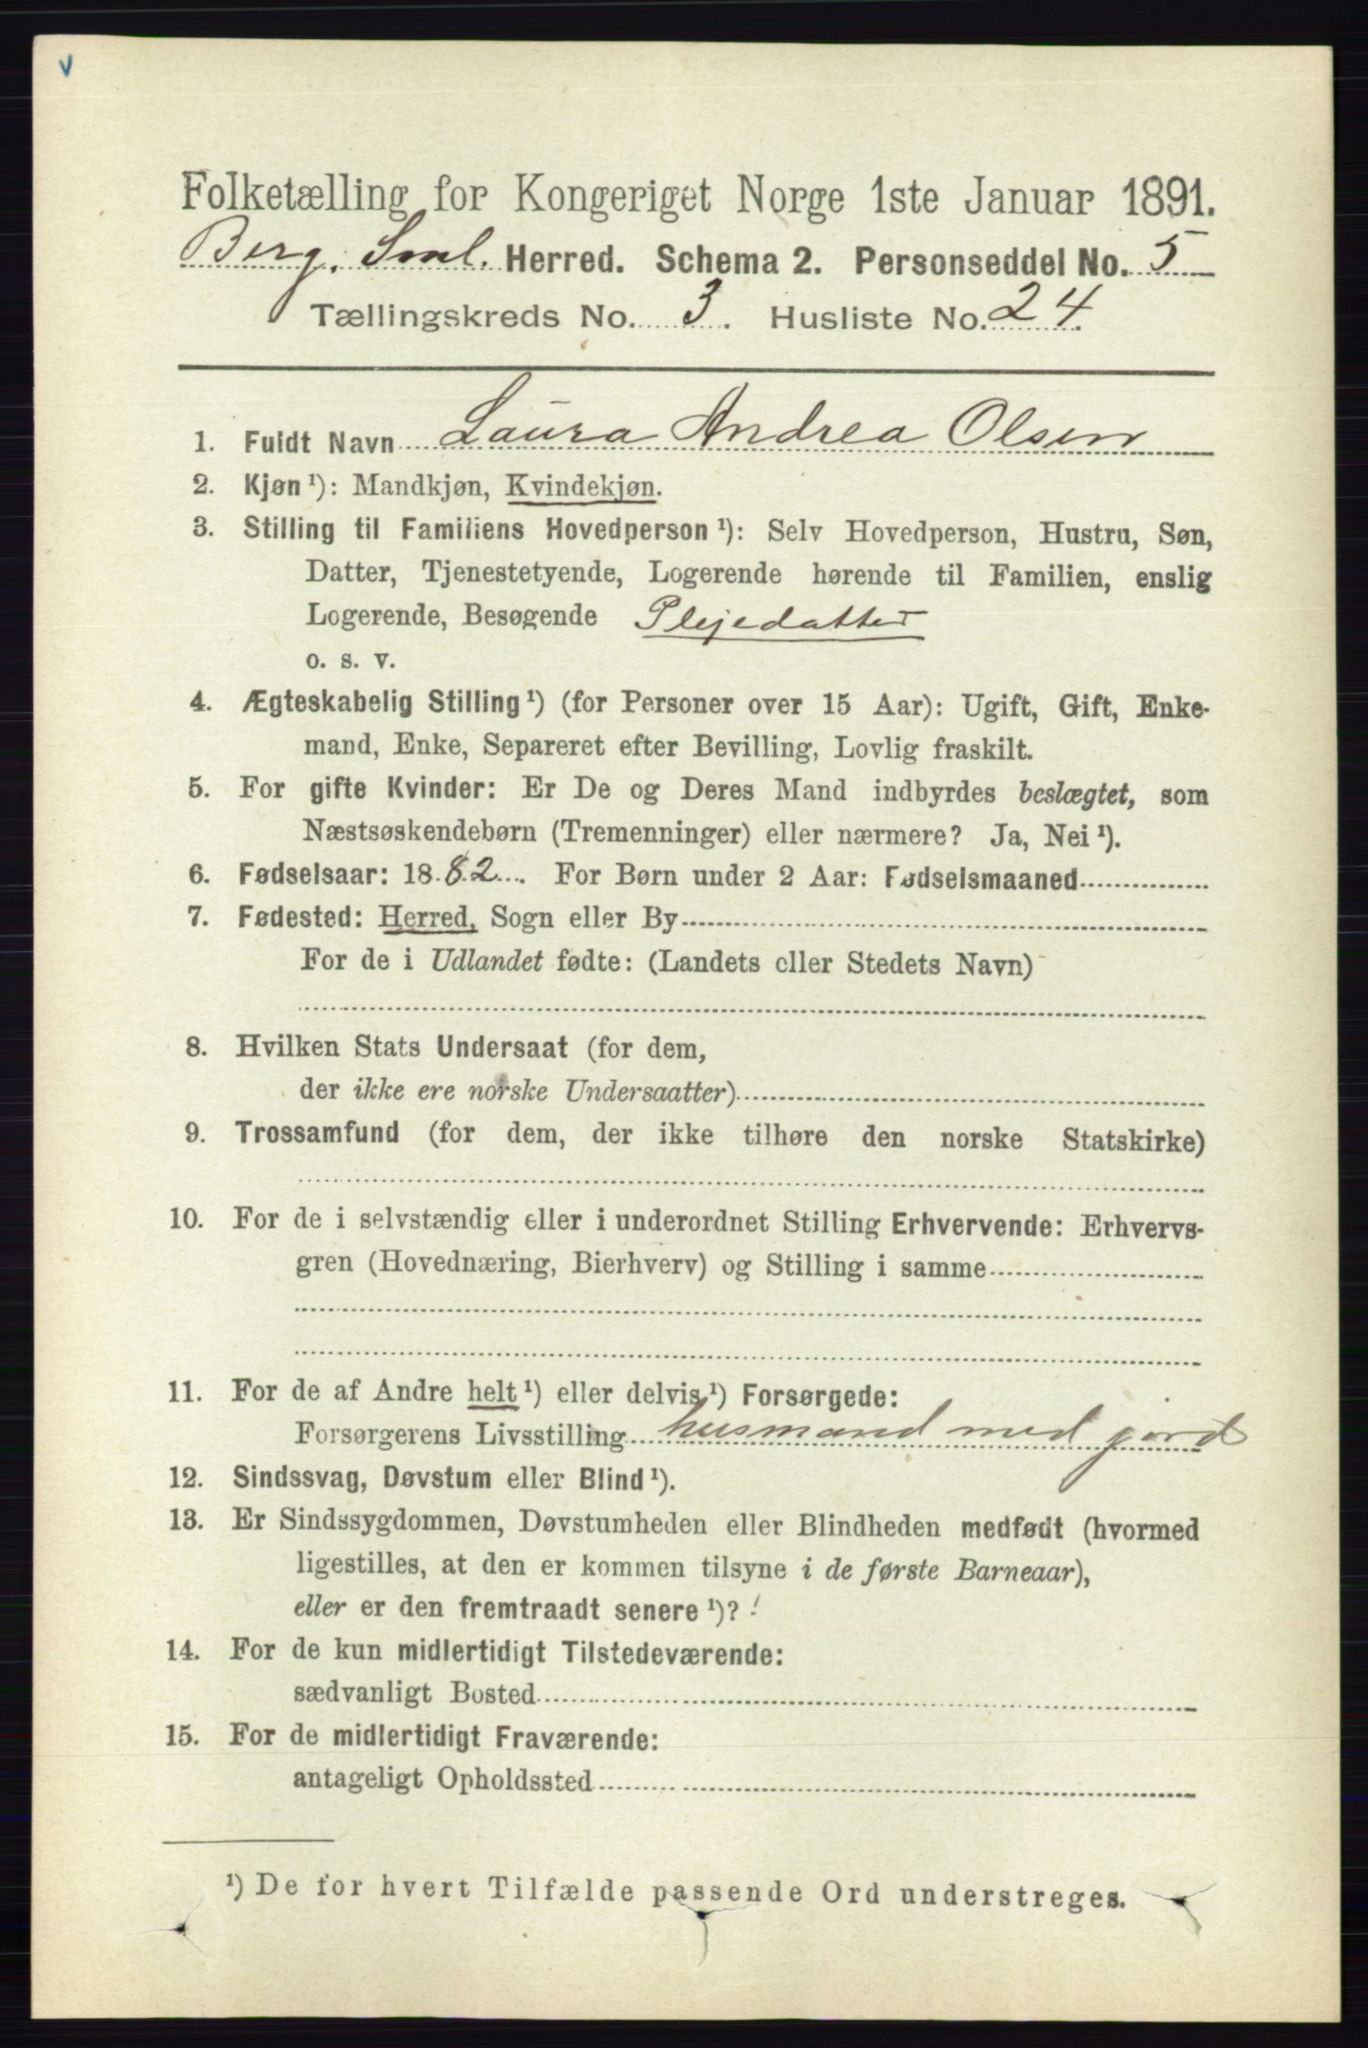 Folketælling for Kongeriget Norge 1ste Januar 1891.
Berg. Sml. Herred. Schema 2. Personseddel No. 5
Tællingskreds No. 3. Husliste No. 24.
1. Fuldt Navn Laura Andrea Olsen
2. Kjøn ¹): Mandkjøn, Kvindekjøn.
3. Stilling til Familiens Hovedperson ¹): Selv Hovedperson, Hustru, Søn,
Datter, Tjenestetyende, Logerende hørende til Familien, enslig
Logerende, Besøgende Plejedatter
o. s. v.
4. Ægteskabelig Stilling ¹) (for Personer over 15 Aar): Ugift, Gift, Enke-
mand, Enke, Separeret efter Bevilling, Lovlig fraskilt.
5. For gifte Kvinder: Er De og Deres Mand indbyrdes beslægtet, som
Næstsøskendebørn (Tremenninger) eller nærmere? Ja, Nei ¹).
6. Fødselsaar: 1882. For Børn under 2 Aar: Fødselsmaaned
7. Fødested: Herred, Sogn eller By
For de i Udlandet fødte: (Landets eller Stedets Navn)
8. Hvilken Stats Undersaat (for dem,
der ikke ere norske Undersaatter)
9. Trossamfund (for dem, der ikke tilhøre den norske Statskirke)
10. For de i selvstændig eller i underordnet Stilling Erhvervende: Erhvervs-
gren (Hovednæring, Bierhverv) og Stilling i samme
11. For de af Andre helt ¹) eller delvis ¹) Forsørgede:
Forsørgerens Livsstilling husmand med jord
12. Sindssvag, Døvstum eller Blind ¹).
13. Er Sindssygdommen, Døvstumheden eller Blindheden medfødt (hvormed
ligestilles, at den er kommen tilsyne i de første Barneaar),
eller er den fremtraadt senere ¹)?
14. For de kun midlertidigt Tilstedeværende:
sædvanligt Bosted
15. For de midlertidigt Fraværende:
antageligt Opholdssted
¹) De for hvert Tilfælde passende Ord understreges.